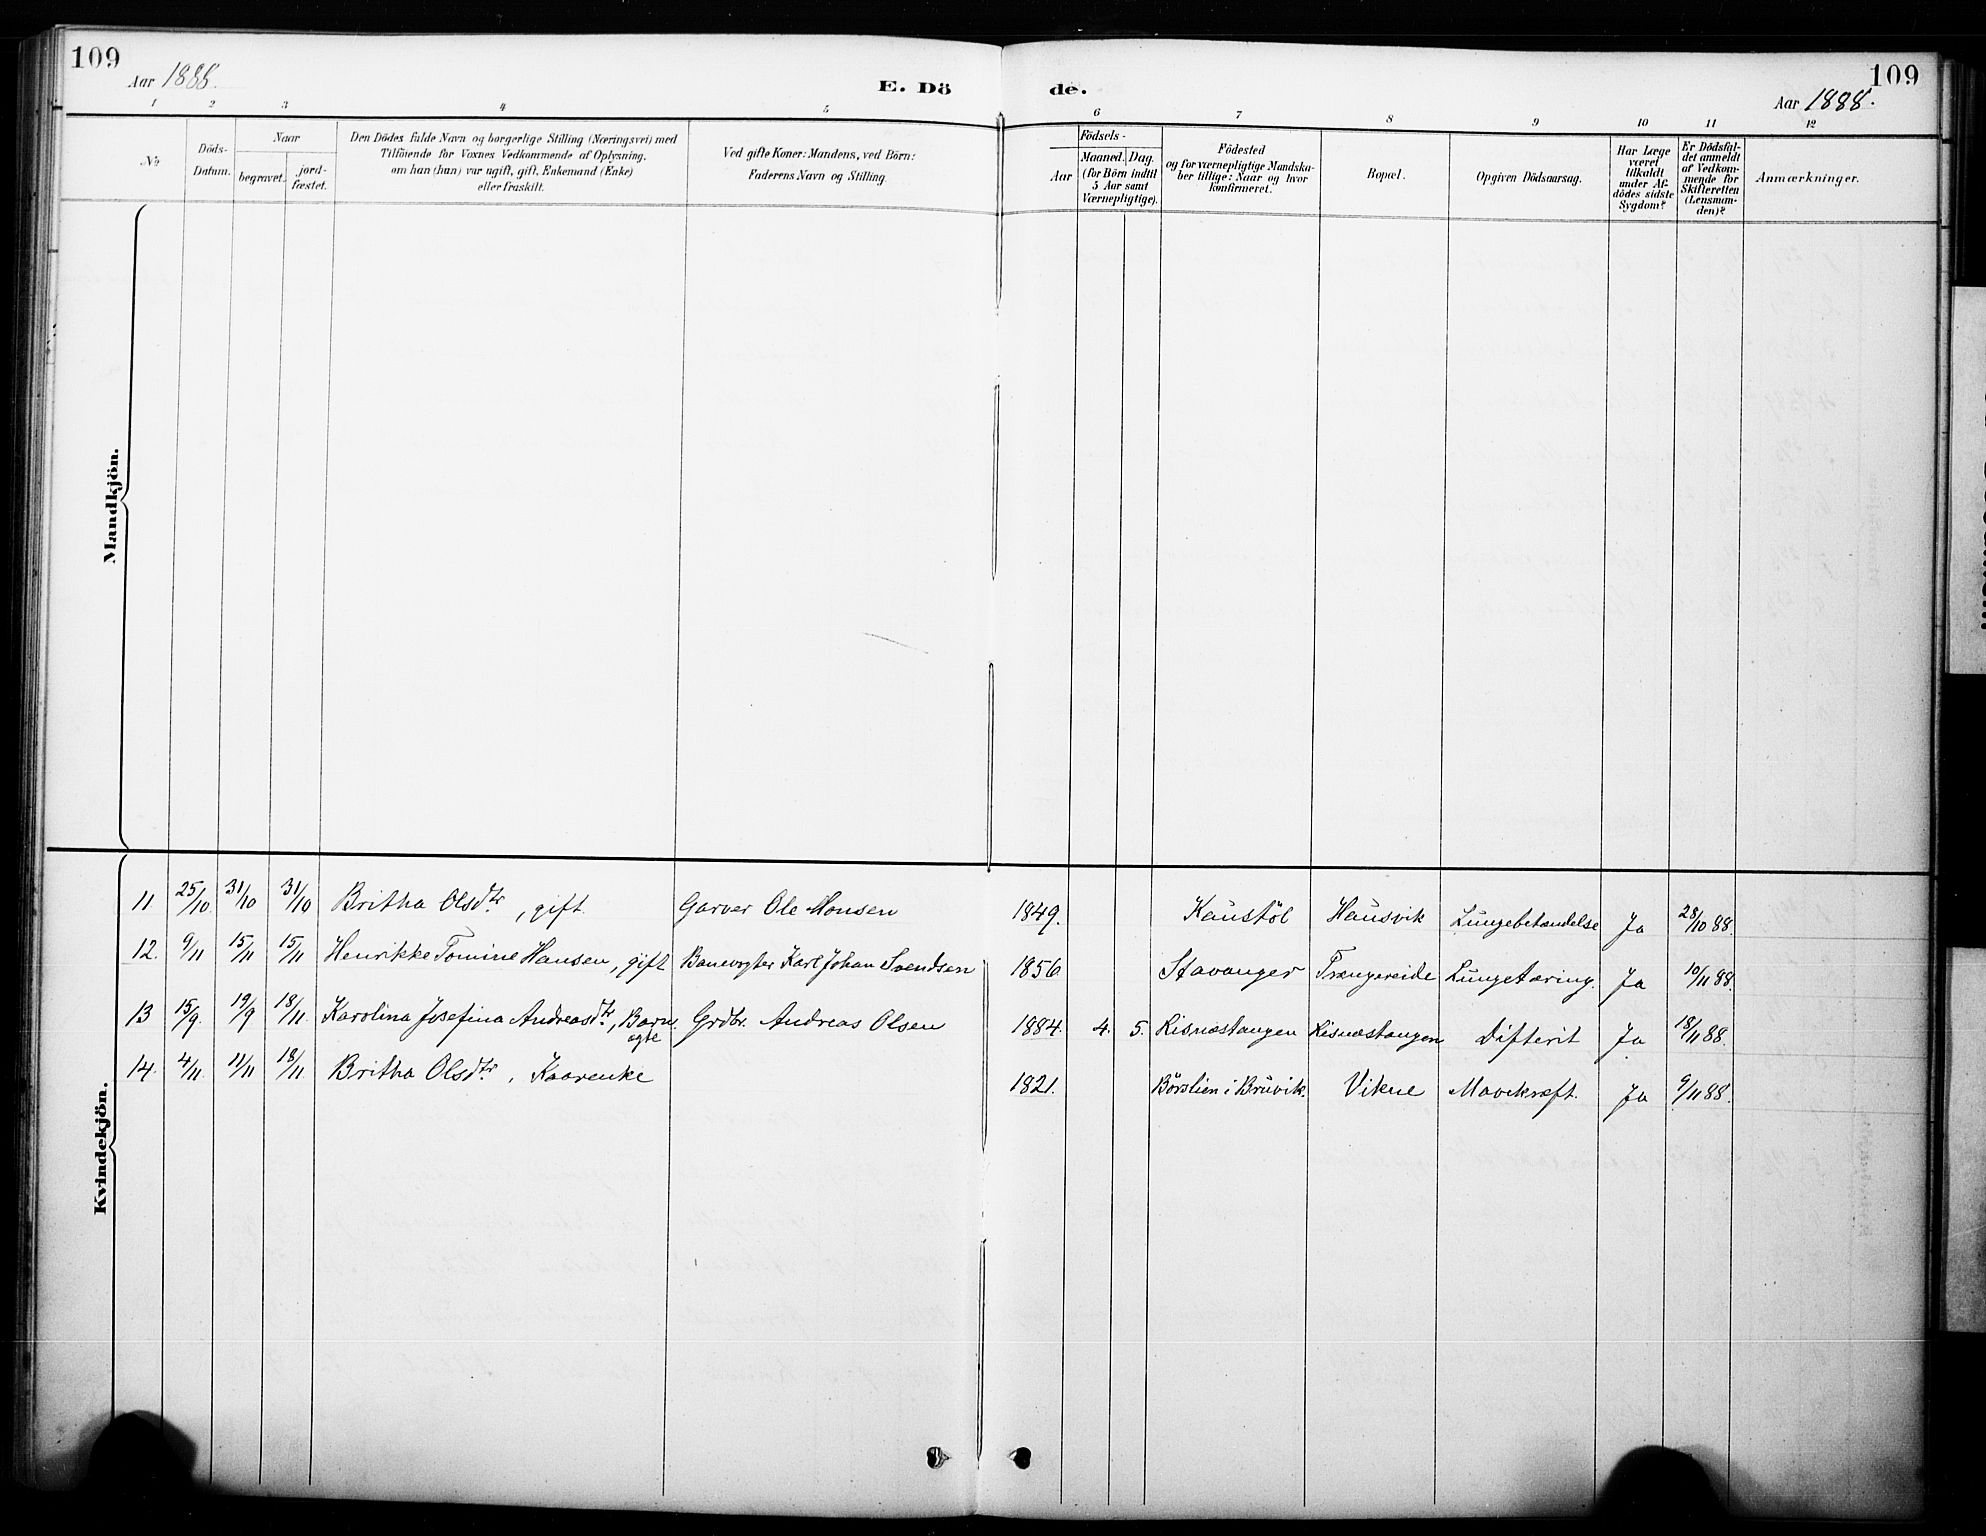 109
Aar 1888.
E. Dö
de.
109
Aar 1888.
1 2 3 4 5 6 7 8 9 10 11 12
No
Döds-
Datum.
Naar
begravet.
jord-
fæstet.
Den Dödes fulde Navn og borgerlige Stilling (Næringsvei) med
Tilföiende for Voxnes Vedkommende af Oplysning,
om han (hun) var ugift, gift, Enkemand (Enke)
eller fraskilt.
Ved gifte Koner: Mandens, ved Börn:
Faderens Navn og Stilling
Födsels-
Aar
Maaned. Dag.
(for Börn indtil
5 Aar samt
Værnepligtige).
Födested
og for værnepligtige Mandska-
ber tillige: Naar og hvor
konfirmeret.
Bopæl.
Opgiven Dödsaarsag.
Har Læge
været
tilkaldt
under Af-
dödes sidste
Sygdom?
Er Dödsfal-
det anmeldt
af Vedkom-
mende for
Skifteretten
(Lensman-
den)?
Anmærkninger.
Mandkjön.
Kvindekjön.
11 25/10 31/10 31/10 Britha Olsdtr, gift Garver Ole Monsen 1849. Kaustöl Hausvik Lungebetændelse Ja 28/10 88.
12. 9/11 15/11 15/11 Henrikke Tomine Hansen, gift Banevogter Karl Johan Svendsen 1856 Stavanger Trængereide Lungetæring. Ja 10/11 88.
13 15/9. 19/9 18/11. Karolina Josefina Andreasdtr., Barn Grdbr. Andreas Olsen 1884. 4. 5. Risnæstangen Risnæstangen Difterit Ja 18/11 88.
ægte
14. 4/11. 11/11 18/11. Britha Olsdtr., Kaarenke 1821. Börslien i Bruvik. Vikne Mavekræft. Ja 9/11 88.